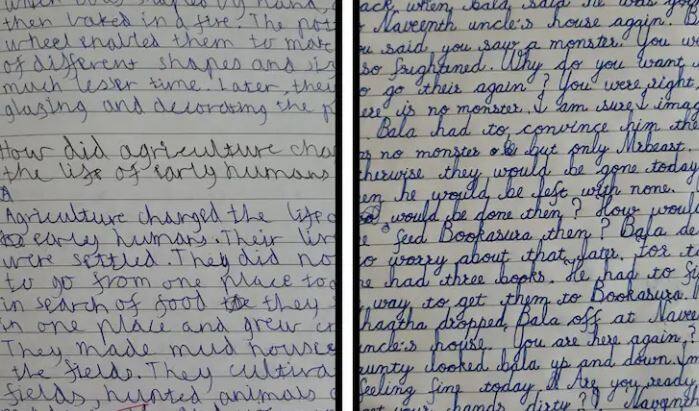 then baked in a fire. The pott
wheel enabled them to make
of different shapes and si
much lesser time. Later, they
glazing and decorating the p
How did agriculture cha
the life of early humans
A
Agriculture changed the life o
early humans. Their li
were settled. They did no
to go from one place to
in search of food they
in one place and grew cr
They made mud house
the fields. They cultiva
fields, hunted animals
ack when Bala said he was
Naveenth uncle's house again.
u said, you saw a monster. you we
so frightened. Why do you want
o go their again? You were right,
ere is no monster. I am sure I imag
Bala had to convince him tha
as no monster but only Mrbeast.
therwise they would be gone today
en he would be left with none.
would be done then? How woul
feed Bookasura then? Bala de
o worry about that later. For to
e had three books. He had to fi
way to get them to Bookasura.
hagtha dropped Bala off at Naveen
uncle's house. You are here again?
unty looked bala up and down.
feeling fine today Are you ready
get your hands dirty? Naveenth